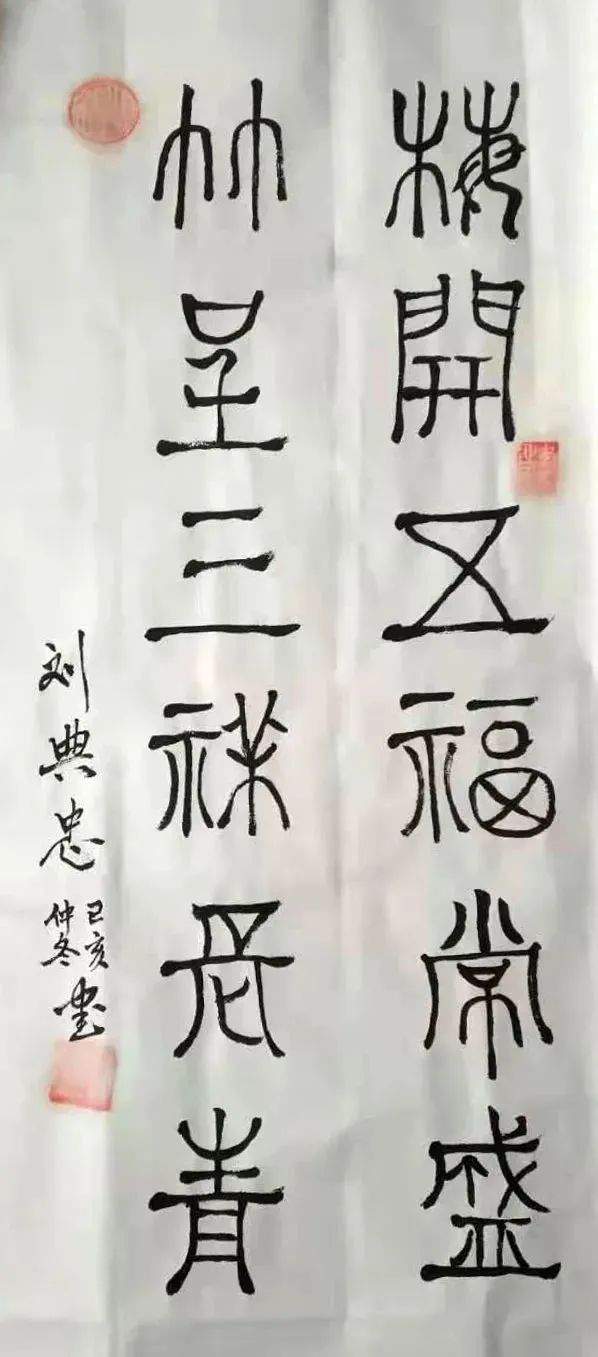 梅開五福常盛
竹呈三祥長青
刘典忠
己亥
仲冬
书